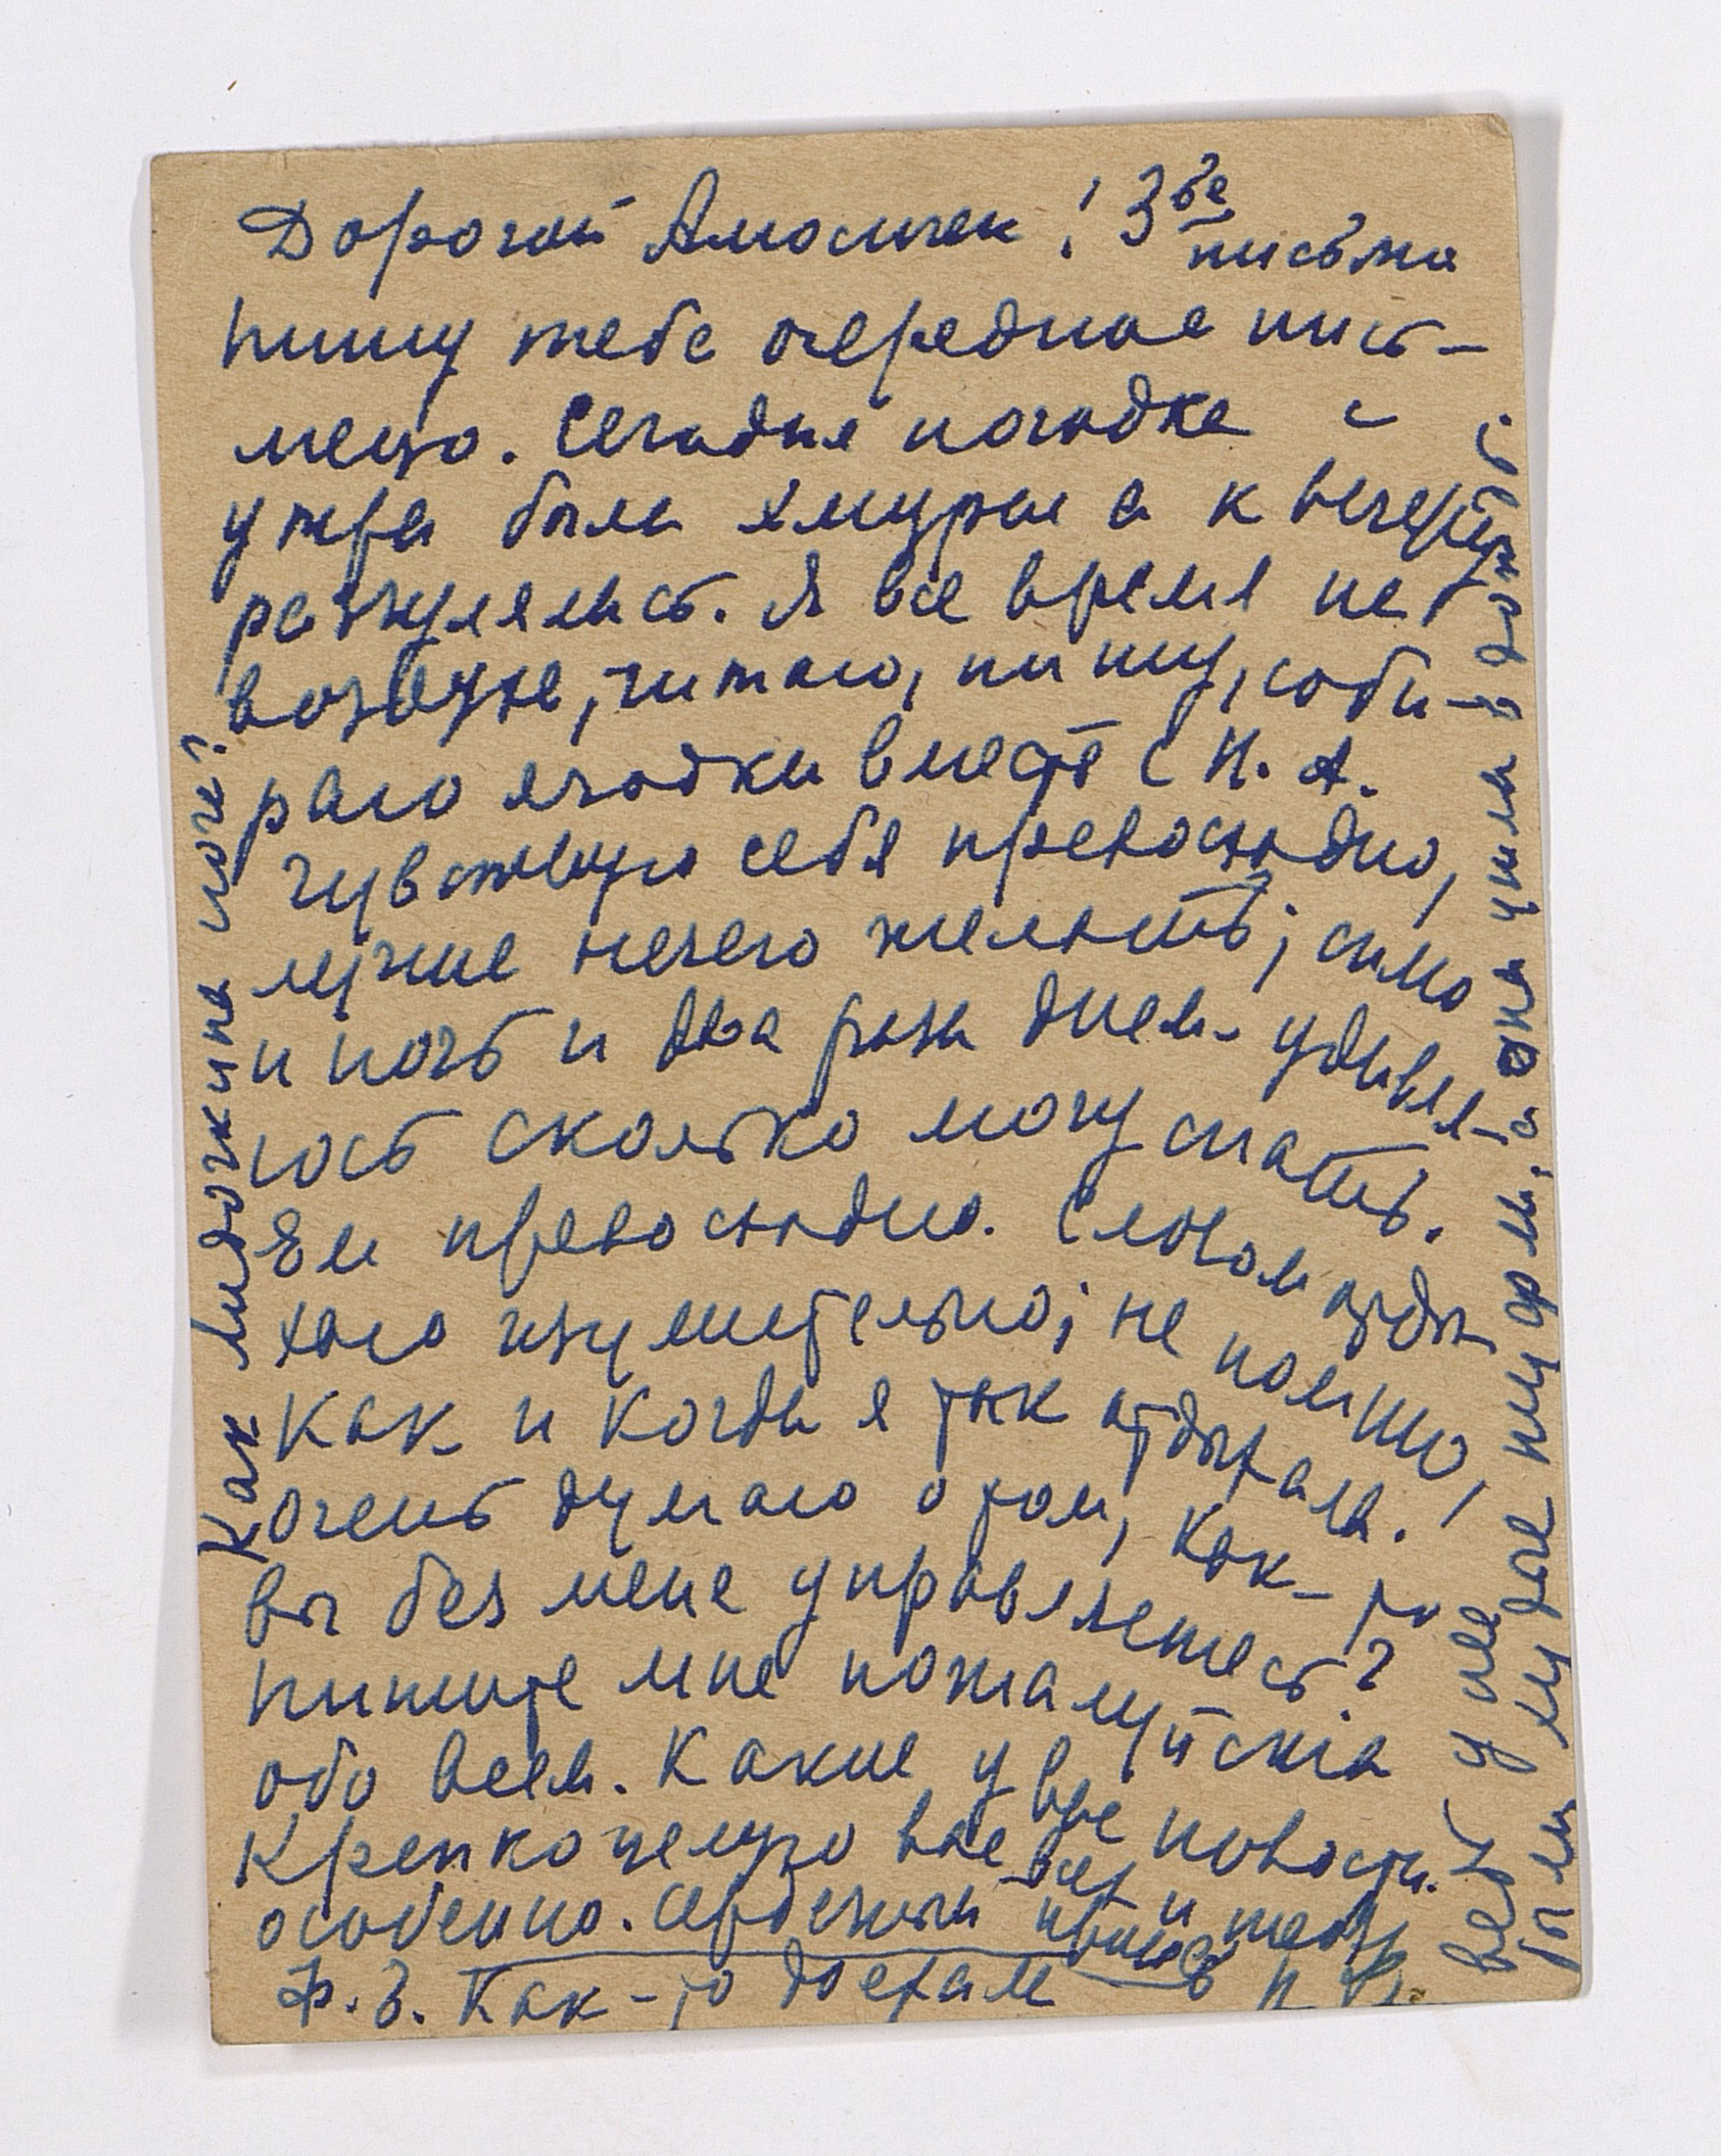 Дорогой Амосичек! 3ье
письмо
пишу тебе очередное пись-
мецо. Сегодня погодка с
утра была хмурая а к вечеру
разгулялась. Я все время на
воздухе, читаю, пишу, соби-
раю ягодки вместе с Н. А.
чувствую себя превосходно,
лучше нечего желать; сплю
и ночь и два раза днем - удивля-
юсь сколько могу спать.
Ем превосходно. Словом отды
хаю изумительно; не помню,
как и когда я так отдыхала.
Очень думаю о том, как-то
вы без меня управляетесь?
Пишите мне пожалуйста
обо всем. Какие у вас новости.
Крепко целую вас всех и тебя
особенно. Сердечный привет
Ф. З. Как-то доехал
Как Лидочкина нога?
ведь у нее
был худые туфли, а она ушла в дождь.